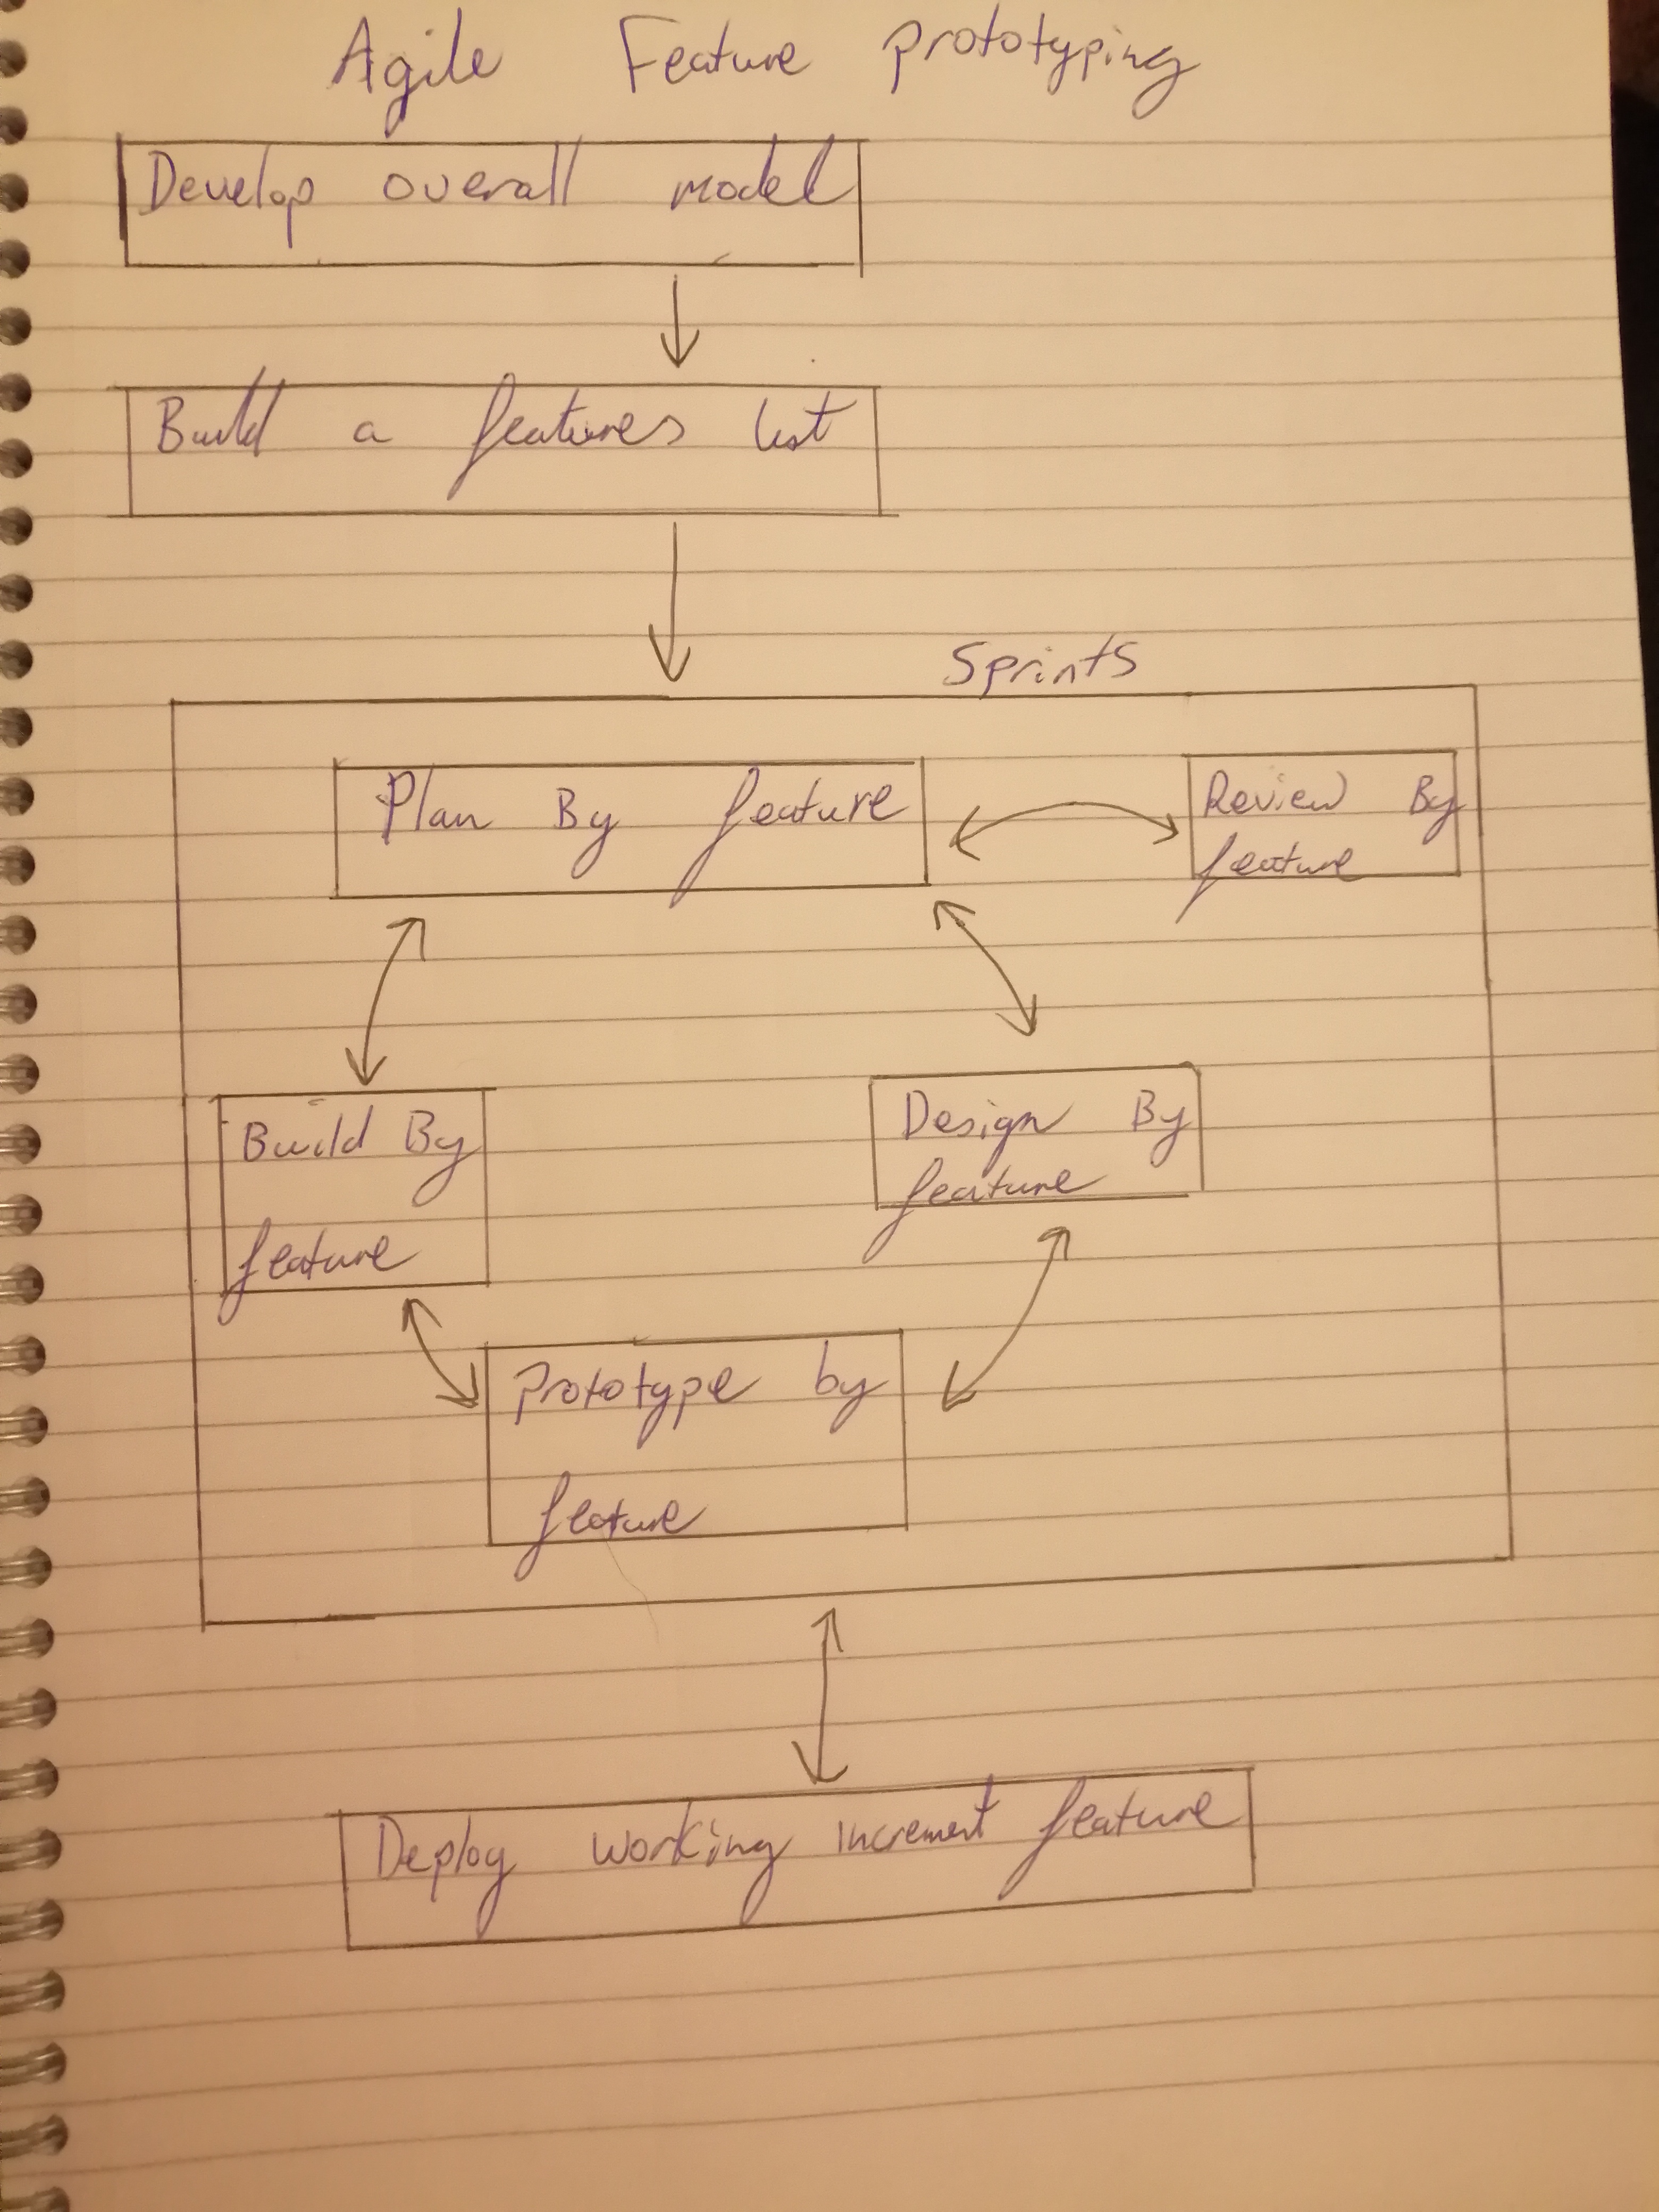 Agile Feature prototyping
Develop overall model
Build a features list
Sprints
Plan By feature
Review By
feature
Build By
feature
Design By
feature
Prototype by
feature
Deploy working increment feature